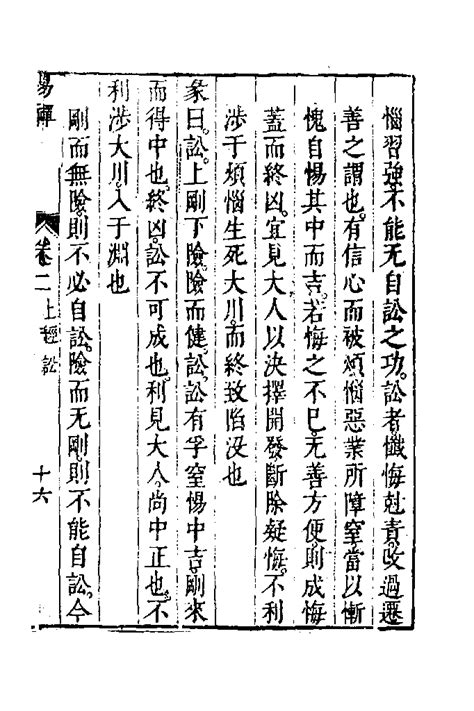 惱習強不能无自訟之功。訟者懺悔尅責。改過遷
善之謂也。有信心而被煩惱惡業所障窒。當以慚
愧自惕其中而吉。若悔之不已。无善方便。則成悔
蓋而終凶。宜見大人以決擇開發。斷除疑悔。不利
涉于煩惱生死大川。而終致陷沒也
彖曰。訟。上剛下險。險而健。訟。訟有孚窒惕中吉。剛來
而得中也。終凶。訟不可成也。利見大人。尚中正也。不
利涉大川。入于淵也
剛而無險。則不必自訟。險而无剛。則不能自訟。今
易禪 卷二 上經 訟 十六